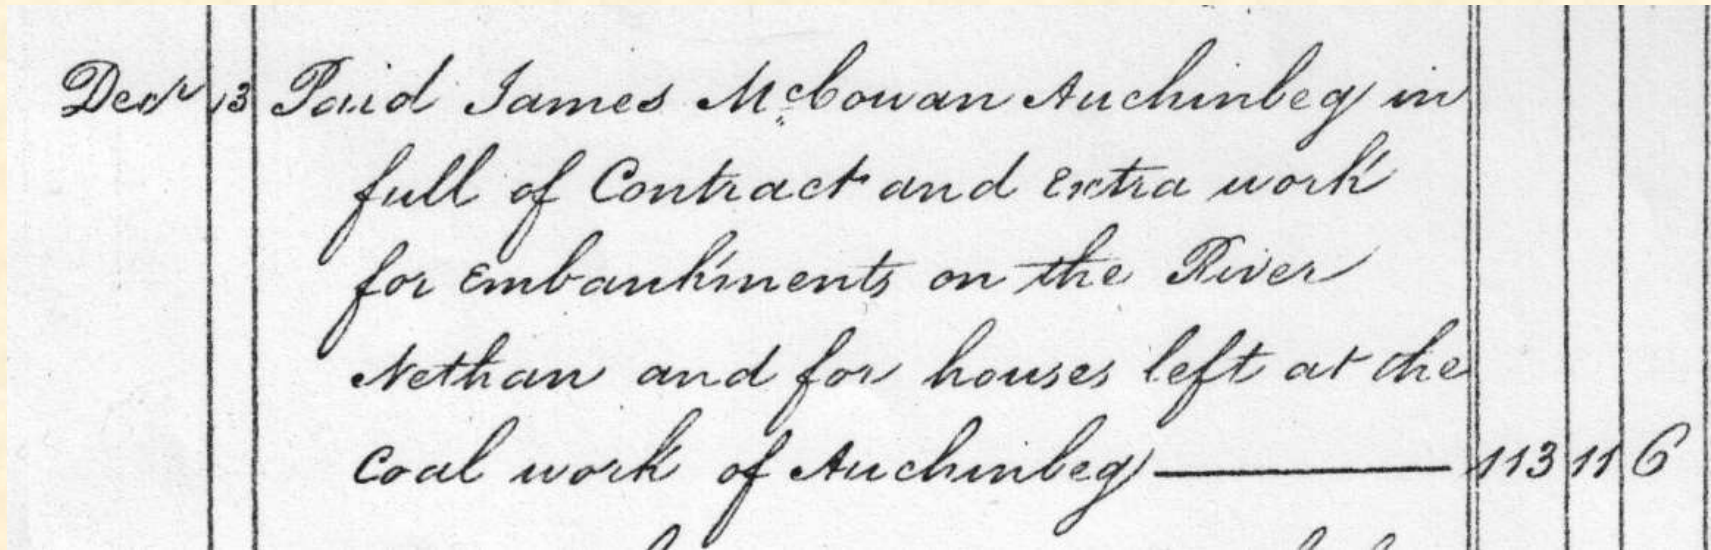 Decr 13 Paid James McCowan Auchinbeg in
full of Contract and Extra work
for Embankments on the River
Nethan and for houses left at the
Coal work of Auchinbeg — 113 11 6